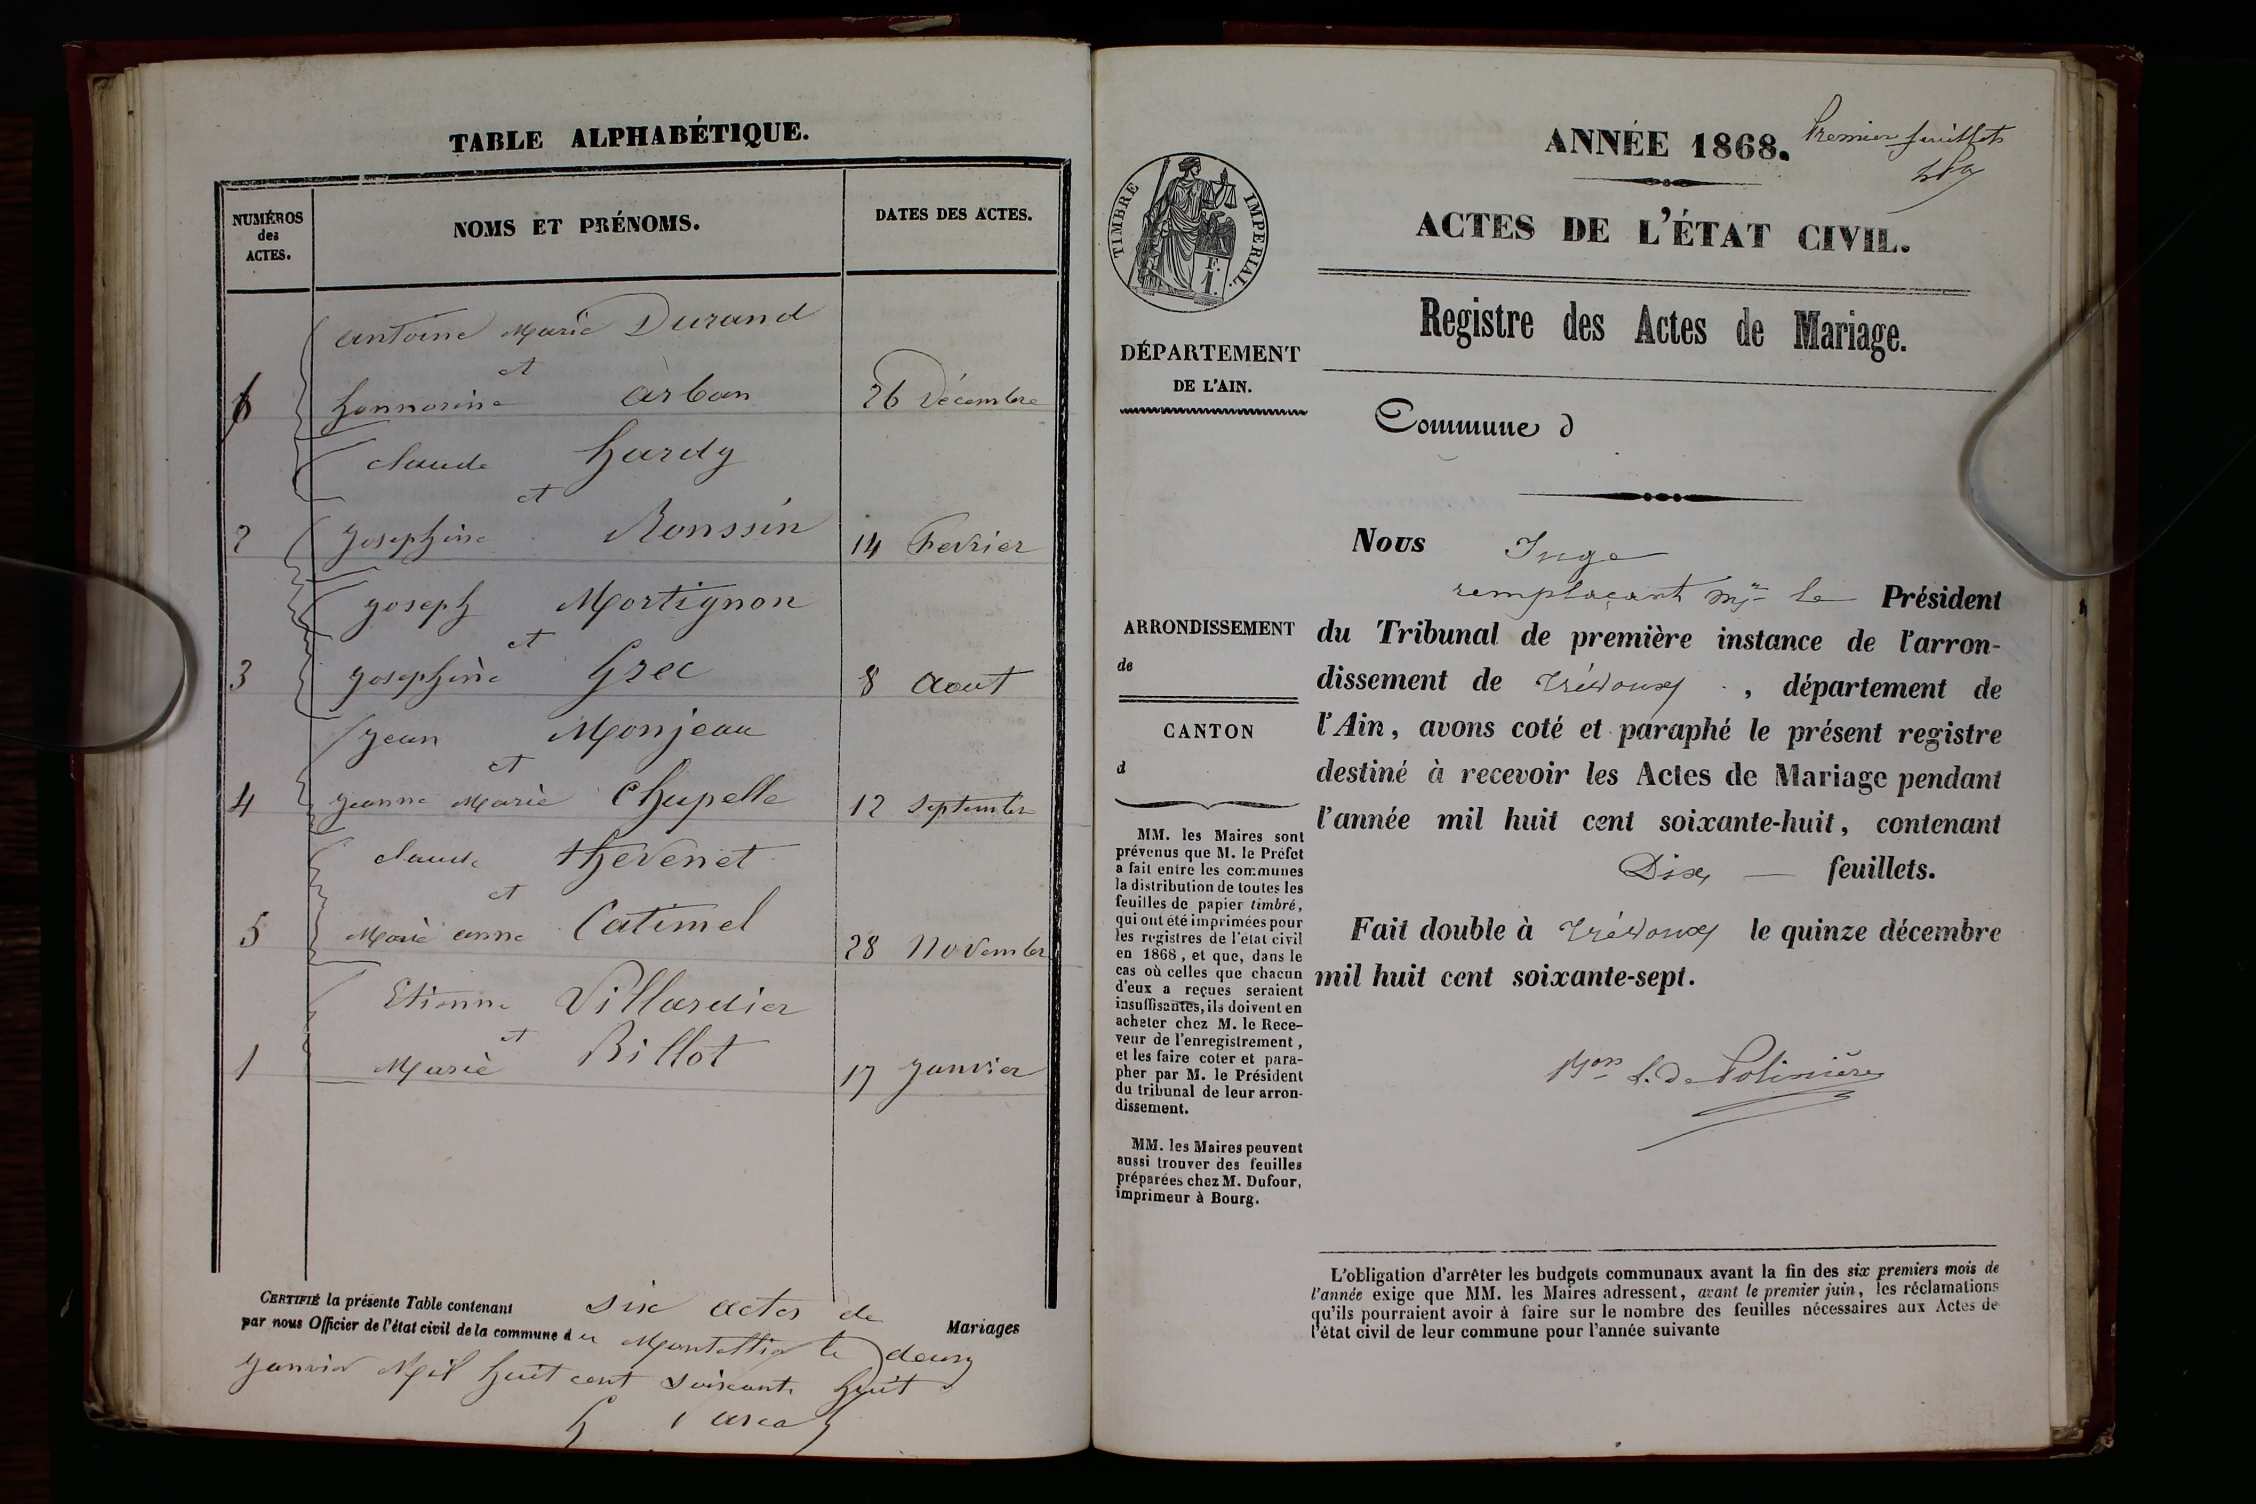 TABLE ALPHABÉTIQUE.
NUMÉROS
des
ACTES.
NOMS ET PRÉNOMS.
DATES DES ACTES.
antoine Marie Durand
et
6 honnorine arban 26 Décembre
claude hardy
et
2 josephine Ronssin 14 Fevrier
joseph Mortignon
et
3 josephine Grec 8 Aout
jean Monjeau
et
4 jeanne Marie Chapelle 12 septembre
claude thevenet
et
5 Marie anne Catimel 28 novembre
Etienne Villardier
et
1 Marie Billot 17 janvier
CERTIFIÉ la présente Table contenant six actes de Mariages
par nous Officier de l'état civil de la commune de le deux
janvier Mil huit cent soixante huit
ANNÉE 1868.
Premier feuillet
TIMBRE IMPERIAL.
F.
1.
ACTES DE L'ÉTAT CIVIL.
Registre des Actes de Mariage.
DÉPARTEMENT
DE L'AIN.
Commune d
ARRONDISSEMENT
de
CANTON
d
MM. les Maires sont
prévenus que M. le Préfet
a fait entre les communes
la distribution de toutes les
feuilles de papier timbré,
qui ont été imprimées pour
les registres de l'état civil
en 1868, et que, dans le
cas où celles que chacun
d'eux a reçues seraient
insuffisantes, ils doivent en
acheter chez M. le Rece-
veur de l'enregistrement,
et les faire coter et para-
pher par M. le Président
du tribunal de leur arron-
dissement.
MM. les Maires peuvent
aussi trouver des feuilles
préparées chez M. Dufour,
imprimeur à Bourg.
Nous Juge
remplaçant Mr le Président
du Tribunal de première instance de l'arron-
dissement de Trévoux, département de
l'Ain, avons coté et paraphé le présent registre
destiné à recevoir les Actes de Mariage pendant
l'année mil huit cent soixante-huit, contenant
Dix feuillets.
Fait double à Trévoux le quinze décembre
mil huit cent soixante-sept.
L. de Polinière
L'obligation d'arrêter les budgets communaux avant la fin des six premiers mois de
l'année exige que MM. les Maires adressent, avant le premier juin, les réclamations
qu'ils pourraient avoir à faire sur le nombre des feuilles nécessaires aux Actes de
l'état civil de leur commune pour l'année suivante